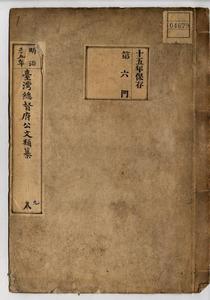 十五年保存
第六門
明治
臺灣總督府公文類纂
九